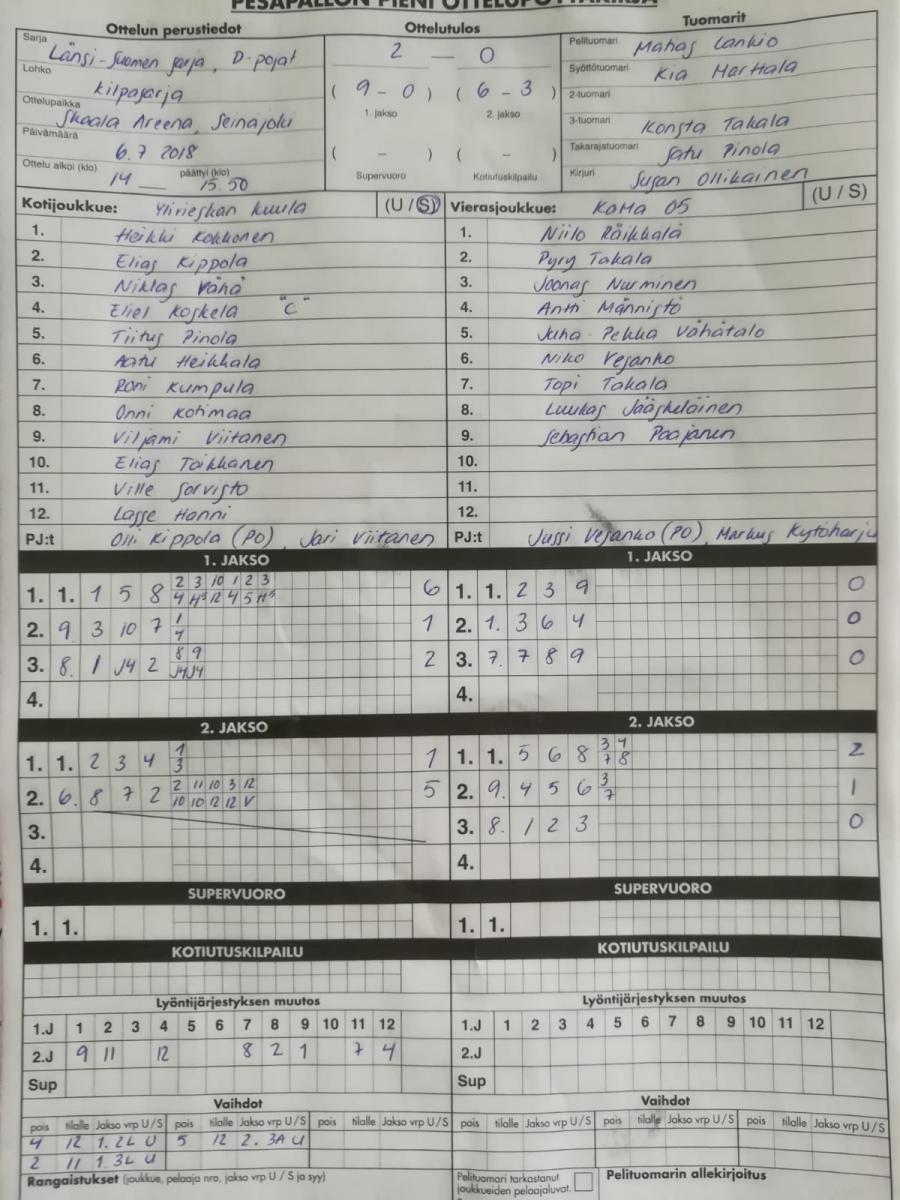 PESÄPALLON PIENI OTTELUPÖYTÄKIRJA
Ottelun perustiedot
Sarja Länsi-Suomen sarja, D-pojat
Lohko Kilpasarja
Ottelupaikka Skaala Areena, Seinäjoki
Päivämäärä 6.7 2018
Ottelu alkoi (klo) 14 päättyi (klo) 15.50
Ottelutulos
2 — 0
( 9 - 0 ) ( 6 - 3 )
1. jakso 2. jakso
( - ) ( - )
Supervuoro Kotiutuskilpailu
Tuomarit
Pelituomari Matias Lankio
Syöttötuomari Kia Marttala
2-tuomari
3-tuomari Konsta Takala
Takarajatuomari Satu Pinola
Kirjuri Susan Ollikainen
Kotijoukkue: Ylivieskan Kuula (U / S)
1. Heikki Kokkonen
2. Elias Kippola
3. Niklas Vähä
4. Eliel Koskela "C"
5. Tiitus Pinola
6. Aatu Heikkala
7. Roni Kumpula
8. Onni Kotimaa
9. Viljami Viitanen
10. Elias Toikkanen
11. Ville Sorvisto
12. Lasse Hanni
PJ:t Olli Kippola (PO), Jari Viitanen
Vierasjoukkue: KaMa 05 (U / S)
1. Niilo Räikkälä
2. Pyry Takala
3. Joonas Nurminen
4. Antti Männistö
5. Juha-Pekka Vähätalo
6. Niko Vesanko
7. Topi Takala
8. Luukas Jääskeläinen
9. Sebastian Paajanen
10.
11.
12.
PJ:t Jussi Vesanko (PO), Markus Kytöharju
1. JAKSO
2 3 10 1 2 3
1. 1. 1 5 8 4 H5 12 4 5 H5 6
1
2. 9 3 10 7 4 1
8 9
3. 8. 1 J4 2 J4 J4 2
4.
1. JAKSO
1. 1. 2 3 9 0
2. 1. 3 6 4 0
3. 7. 7 8 9 0
4.
2. JAKSO
1
1. 1. 2 3 4 3 1
2 11 10 3 12
2. 6. 8 7 2 10 10 12 12 V 5
3.
4.
2. JAKSO
3 4
1. 1. 5 6 8 7 8 2
3
2. 9. 4 5 6 7 1
3. 8. 1 2 3 0
4.
SUPERVUORO
1. 1.
SUPERVUORO
1. 1.
KOTIUTUSKILPAILU
KOTIUTUSKILPAILU
Lyöntijärjestyksen muutos
1.J 1 2 3 4 5 6 7 8 9 10 11 12
2.J 9 11 12 8 2 1 7 4
Sup
Lyöntijärjestyksen muutos
1.J 1 2 3 4 5 6 7 8 9 10 11 12
2.J
Sup
Vaihdot
pois tilalle Jakso vrp U / S pois tilalle Jakso vrp U / S pois tilalle Jakso vrp U / S
4 12 1.2L U 5 12 2.3A U
2 11 1.3L U
Vaihdot
pois tilalle Jakso vrp U / S pois tilalle Jakso vrp U / S pois tilalle Jakso vrp U / S
Rangaistukset (joukkue, pelaaja nro, jakso vrp U / S ja syy)
Pelituomari tarkastanut
joukkueiden pelaajaluvat.
Pelituomarin allekirjoitus